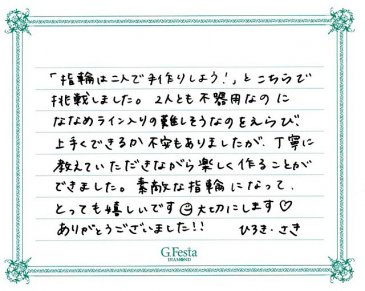 「指輪は二人で手作りしよう！」とこちらで
挑戦しました。2人とも不器用なのに
ななめライン入りの難しそうなのをえらび、
上手くできるか不安もありましたが、丁寧に
教えていただきながら楽しく作ることが
できました。素敵な指輪になって、
とっても嬉しいです☺大切にします♡
ありがとうございました!!
ひろき・さき
G.Festa
DIAMOND